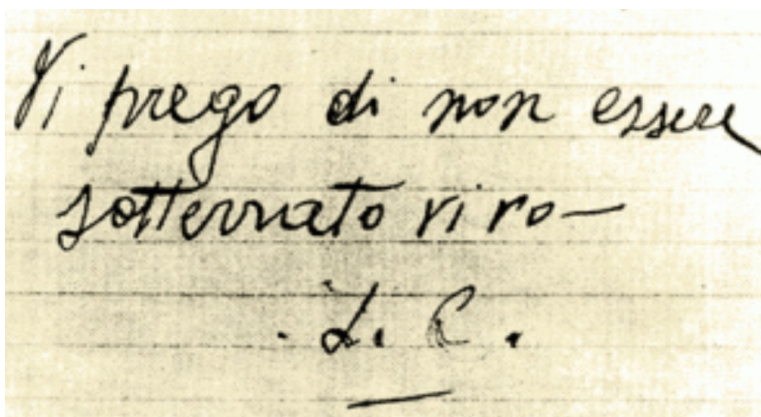 Vi prego di non essere
sotterrato vivo —
. L. C.